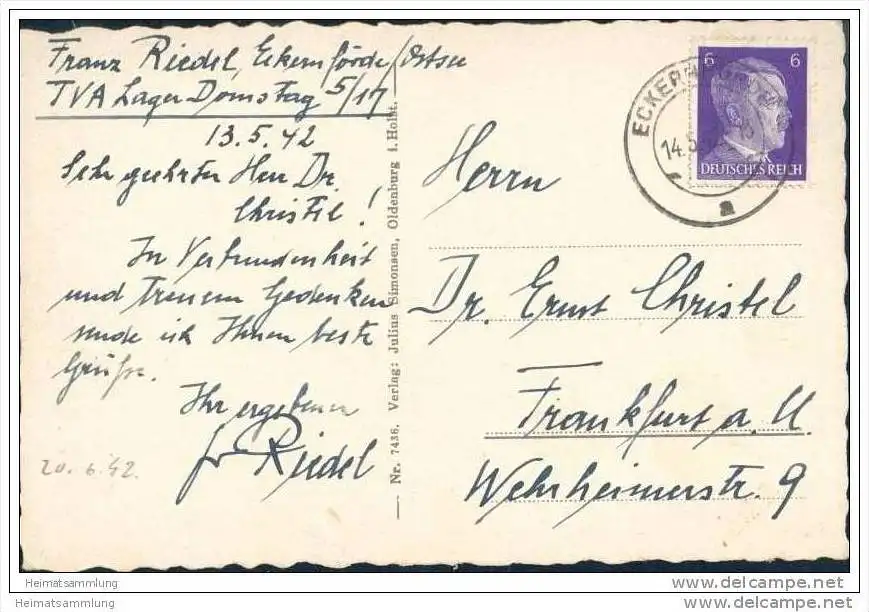 Franz Riedel, Eckernförde/Ostsee
TVA Lager Domstag 5/17
13.5.42
Sehr geehrter Herr Dr.
Christel!
In Verbundenheit
und Treuem Gedenken
sende ich Ihnen beste
Grüße.
Ihr ergebener
Riedel
20.6.42.
Nr. 7436. Verlag: Julius Simonsen, Oldenburg i. Holst.
6 6
DEUTSCHES REICH
ECKERNFÖRDE
14.5.
a
Herrn
Dr. Ernst Christel
Frankfurt a. M
Wehrheimerstr. 9
Heimatsammlung
Heimatsammlung
www.delcampe.net
www.delcampe.net